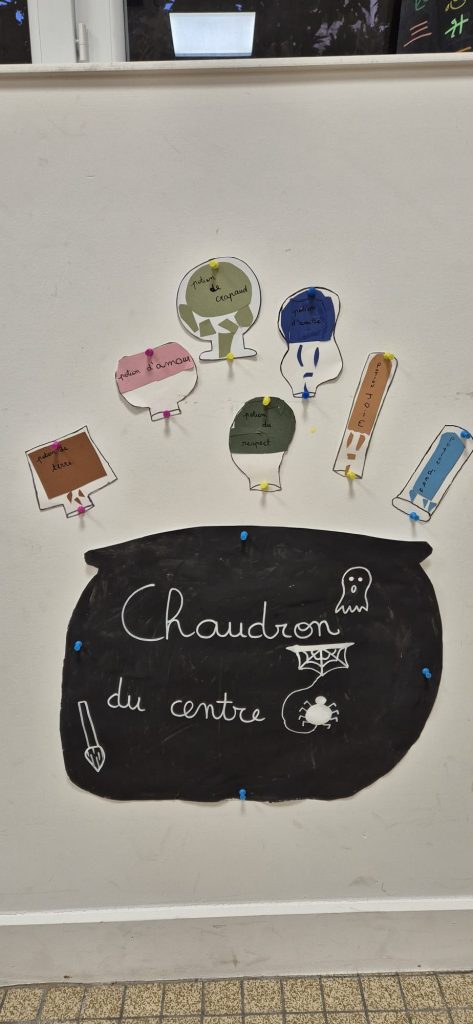 potion
de
crapaud
potion
d'amitié
potion d'amour
potion JOIE
potion
du
respect
potion de
terre
Chaudron
du centre